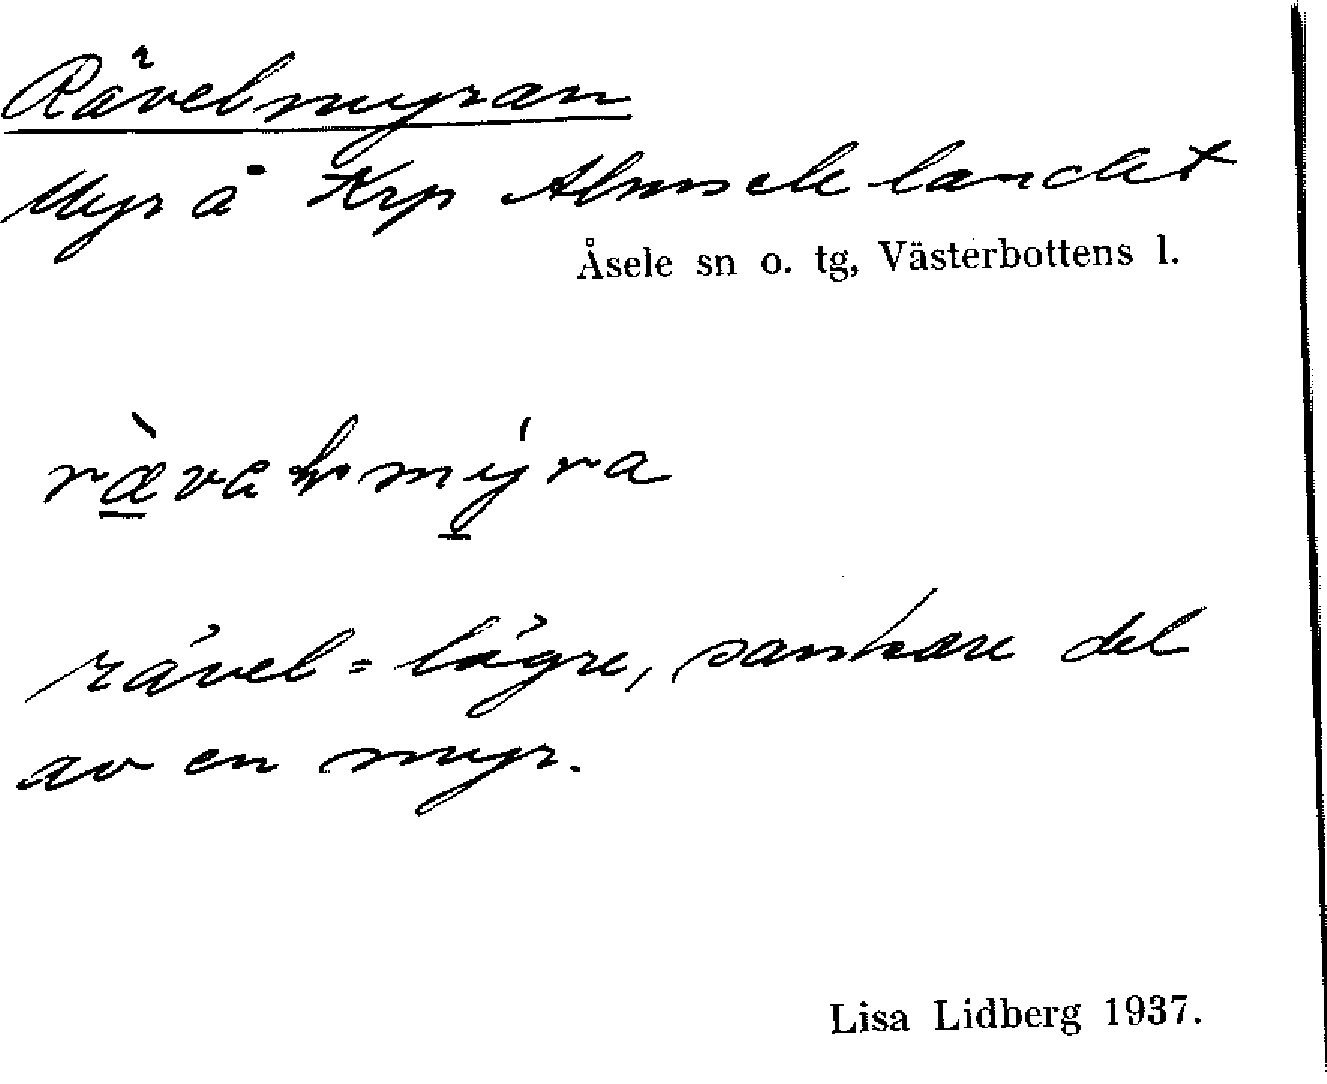 Rävelmyran
Myr å Krp Almsele landet
Åsele sn o. tg, Västerbottens l.
rävel = lägre, sankare del
av en myr.
Lisa Lidberg 1937.